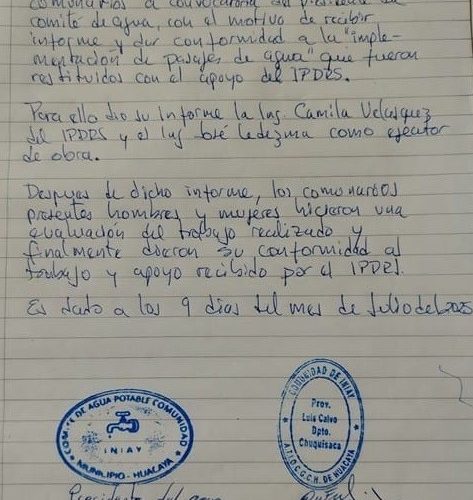 comunarios a convocatoria del presidente de
comite de agua, con el motivo de recibir
informe y dar conformidad a la "imple-
mentación de pasajes de agua" que fueron
restituidos con el apoyo del IPDRS.
Para ello dio su informe la Ing. Camila Velasquez
del IPDRS y el Ing José Ledezma como ejecutor
de obra.
Despues de dicho informe, los comunarios
presentes hombres y mujeres hicieron una
evaluación del trabajo realizado y
finalmente dieron su conformidad al
trabajo y apoyo recibido por el IPDRS.
Es dado a los 9 dias del mes de Julio del 2025
COMITE DE AGUA POTABLE COMUNIDAD
INIAY
MUNICIPIO - HUACAYA
COMUNIDAD DE INIAY
Prov.
Luis Calvo
Dpto.
Chuquisaca
A.T.I.O.C.G.CH. DE HUACAYA
Presidente del agua